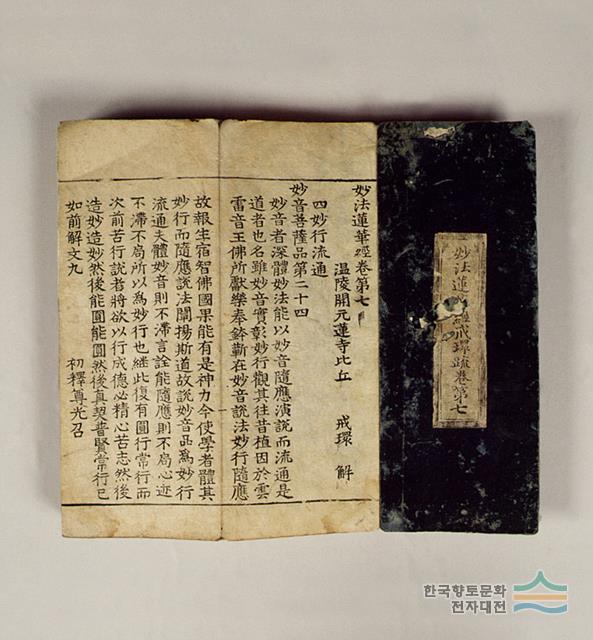 妙法蓮經戒環疏卷第七
妙法蓮華經卷第七
温陵開元蓮寺比丘 戒環 解
四妙行流通
妙音菩薩品第二十四
妙音者深體妙法能以妙音隨應演說而流通是
道者也名雖妙音實彰妙行觀其往昔植因於雲
雷音王佛所獻樂奉鉢蘄在妙音說法妙行隨應
故報生宿智佛國果能有是神力今使學者體其
妙行而隨應說法闡揚斯道故說妙音品爲妙行
流通夫體妙音則不滯言詮能隨應則不局心迹
不滯不局所以爲妙行也継此復有圓行常行而
次前苦行說者將欲以行成德必精心苦志然後
造妙造妙然後能圓能圓然後真契普賢常行已
如前解文九 初釋尊光召
한국향토문화
전자대전